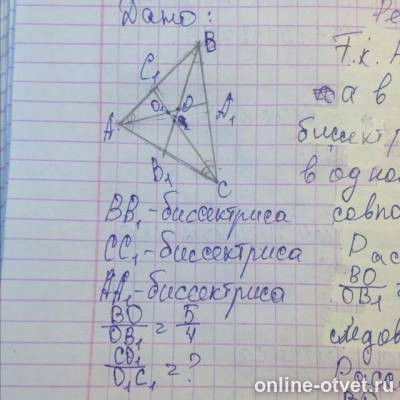 Дано:
B
C₁
O₁
O
A
A₁
B₁
C
BB₁-биссектриса
CC₁-биссектриса
AA₁-биссектриса
BO/OB₁ = 5/4
CO₁/O₁C₁ = ?
Ре
Т.к. А
а в
биссектр
в одно
совпа
Рас
BO/OB₁ =
следов
online-otvet.ru